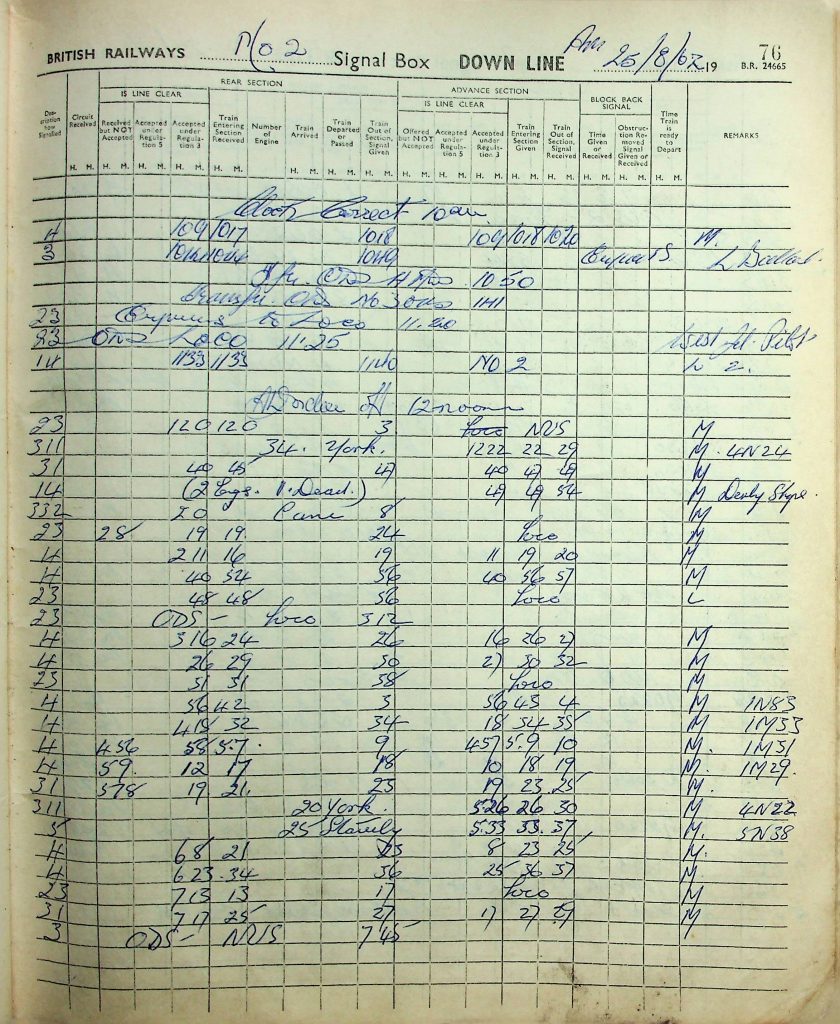 76
BRITISH RAILWAYS No 2 Signal Box DOWN LINE 25/8/62 19 B.R. 24665
REAR SECTION ADVANCE SECTION
IS LINE CLEAR IS LINE CLEAR BLOCK BACK SIGNAL
Description how Signalled Circuit Received Received but NOT Accepted Accepted under Regulation 5 Accepted under Regulation 3 Train Entering Section Received Number of Engine Train Arrived Train Departed or Passed Train Out of Section, Signal Given Offered but NOT Accepted Accepted under Regulation 5 Accepted under Regulation 3 Train Entering Section Given Train Out of Section, Signal Received Time Given or Received Obstruction Removed Signal Given or Received Time Train is ready to Depart REMARKS
H. M. H. M. H. M. H. M. H. M. H. M. H. M. H. M. H. M. H. M. H. M. H. M. H. M. H. M. H. M.
Clock Correct 10am
4 109 1017 1018 109 1018 1020 M.
3 1049
ODS 1050
ODS No 3 1141
23 Engines to Loco 11.20
23 ODS LOCO 11.25
14 1133 1133 1140 NO 2
off 12 noon
23 120 120 3 Loco NUS M
311 34. York. 1222 22 29 M. 4N24
31 40 45 47 40 47 49 M
14 (2 Engs. 1. Dead.) 49 49 54 M Derby Shops.
332 20 8 M
23 28 19 19 24 Loco M
4 211 16 19 11 19 20 M
4 40 54 56 40 56 57 M
23 48 48 56 Loco L
23 ODS - Loco 312
4 316 24 26 16 26 27 M
4 26 29 30 27 30 32 M
23 51 51 58 Loco M
4 56 42 3 56 43 4 M 1N83
4 418 32 34 18 34 35 M 1M33
4 456 58 57. 9 457 5.9 10 M. 1M31
4 59. 12 17 18 10 18 19 M. 1M29.
31 578 19 21. 23 19 23 25 M.
311 20 York. 526 26 30 M 4N22
5 25 Stanley 533 33. 37 M. 5N38
4 68 21 23 8 23 25 M.
4 623. 34 36 25 36 37 M.
23 713 13 17 Loco M
31 717 25 27 17 27 29 M
3 ODS - NUS 745